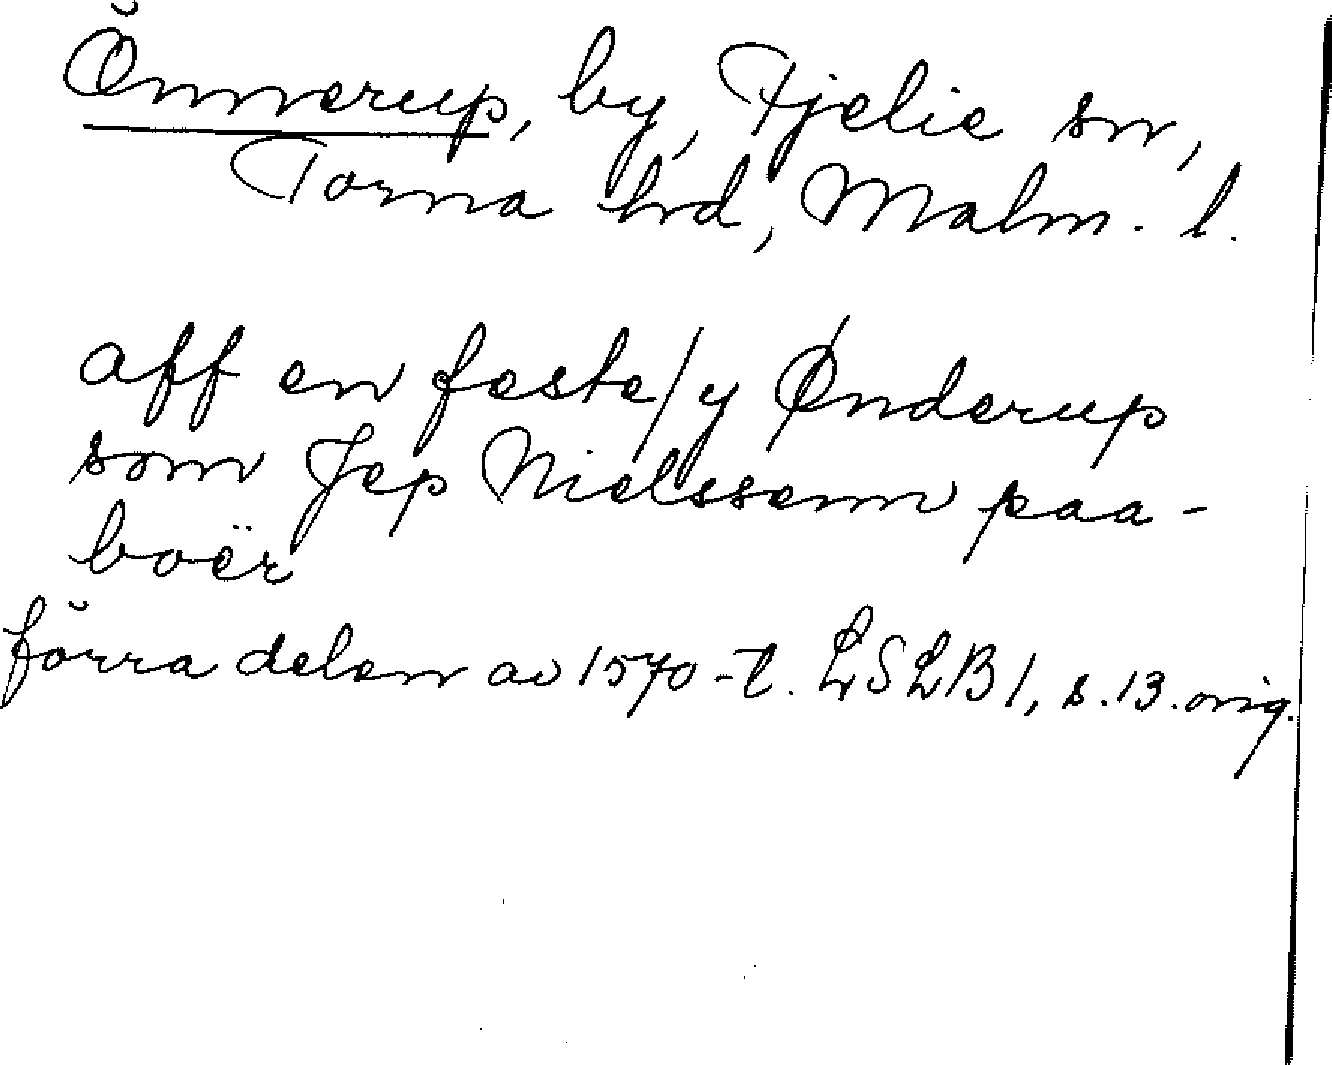 Önnerup, by, Fjelie sn,
Torna hrd, Malm. l.
aff en feste/y Ønderup
som Jep Nielssenn paa-
boër
förra delen av 1570-t. LSLB1, s. 13. orig.